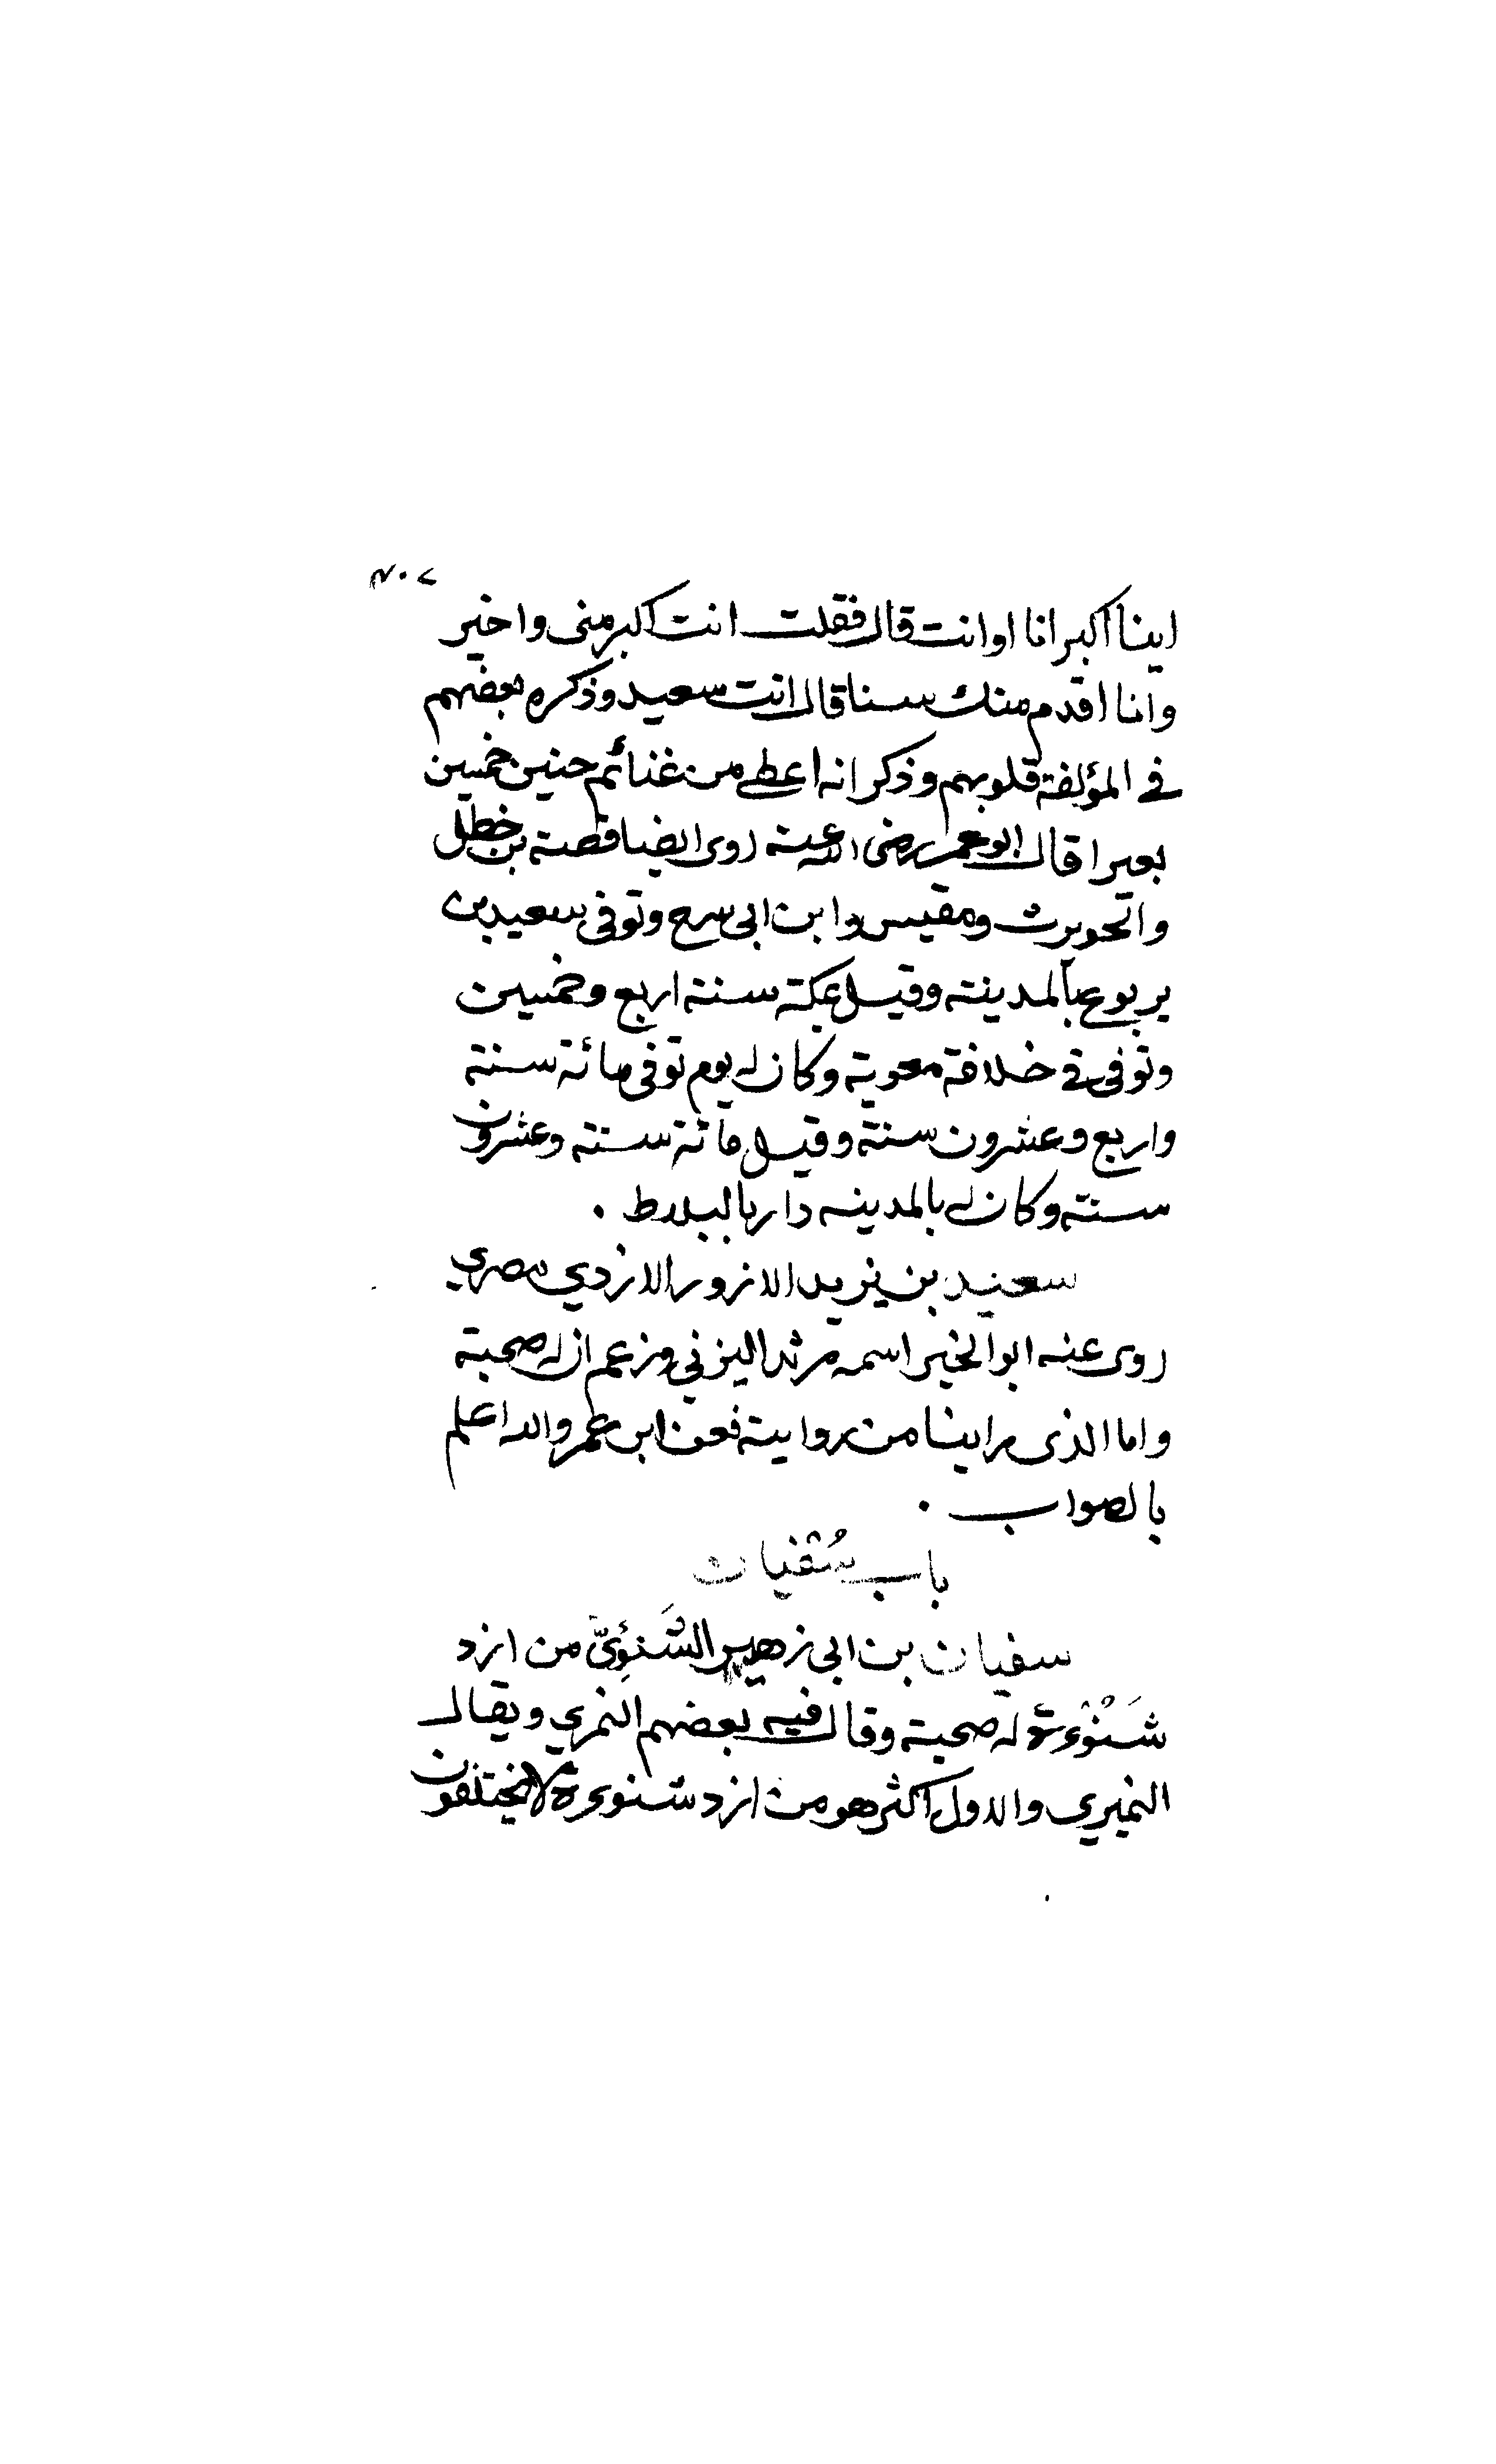 ٢٠٧
اينا اكبر انا او انت قال فقلت انت اكبر منى واخير
وانا اقدم منك سنا قال انت سعيد وذكره بعضهم
في المؤلفة قلوبهم وذكر انه اعطي من غنائم حنين خمسين
بعيرا قال ابو عمر رضى الله عنه روى ايضا قصة بن خطل
والحويرث ومقيس وابن ابى سرح وتوفى سعيد بن
يربوع بالمدينة وقيل بمكة سنة اربع وخمسين
وتوفى في خلافة معوية وكان له يوم توفى مائة سنة
واربع وعشرون سنة وقيل مائة سنة وعشرون
سنة وكان له بالمدينه دار بالبلاط .
سعيد بن يزيد الازور الازدي مصري
روى عنه ابو الخير اسمه مرثد اليزني وزعم ان له صحبة
واما الذى راينا من روايته فعن ابن عمر والله اعلم
بالصواب .
باب سُفيان
سفيان بن ابى زهير الشَنوِئيّ من ازد
شَنُوْءة له صحبة وقال فيه بعضهم النمري ويقال
النميري والاول اكثر هو من ازد شنوءة لا يختلفون